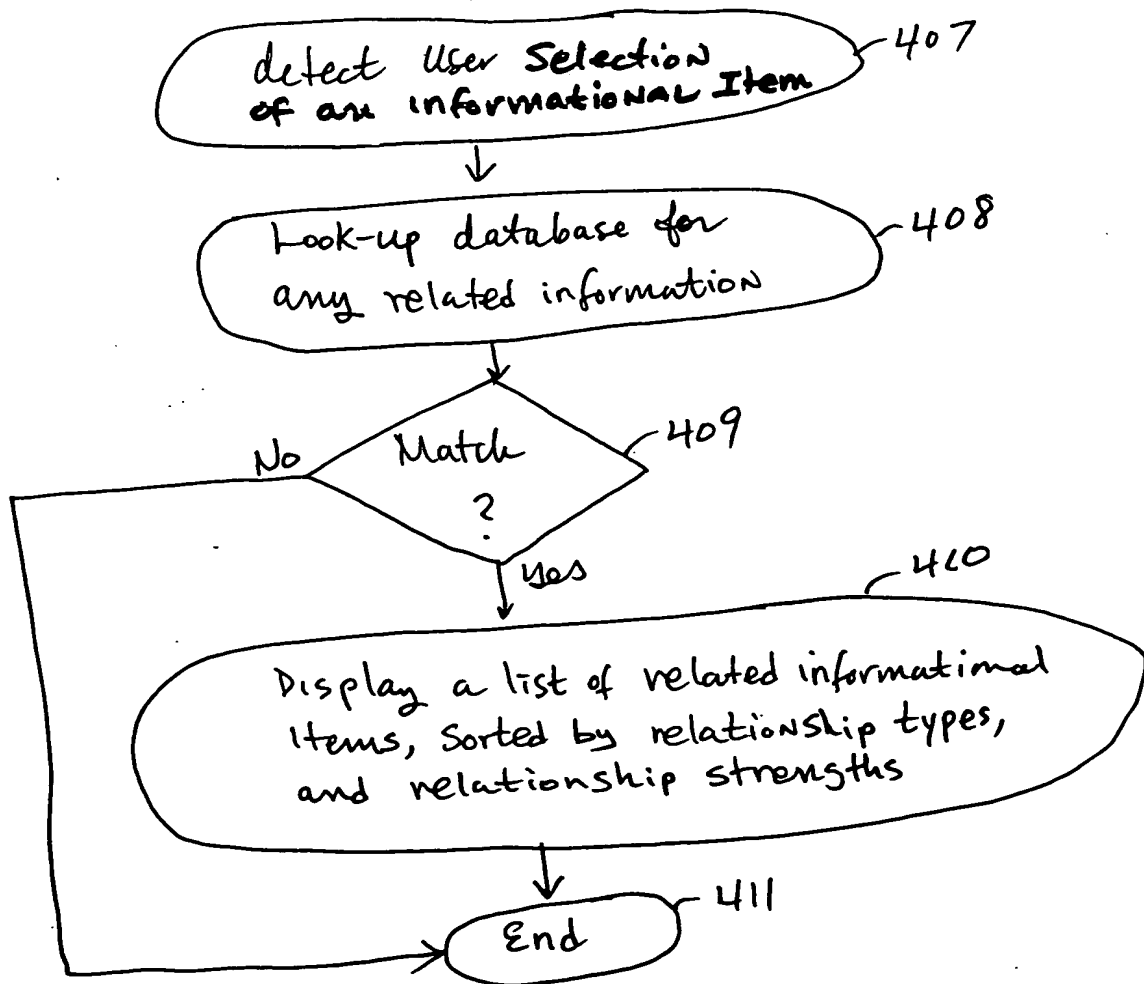 detect User Selection
of an informational Item
407
Look-up database for
any related information
408
Match
?
409
No
yes
410
Display a list of related informational
Items, Sorted by relationship types,
and relationship strengths
End
411